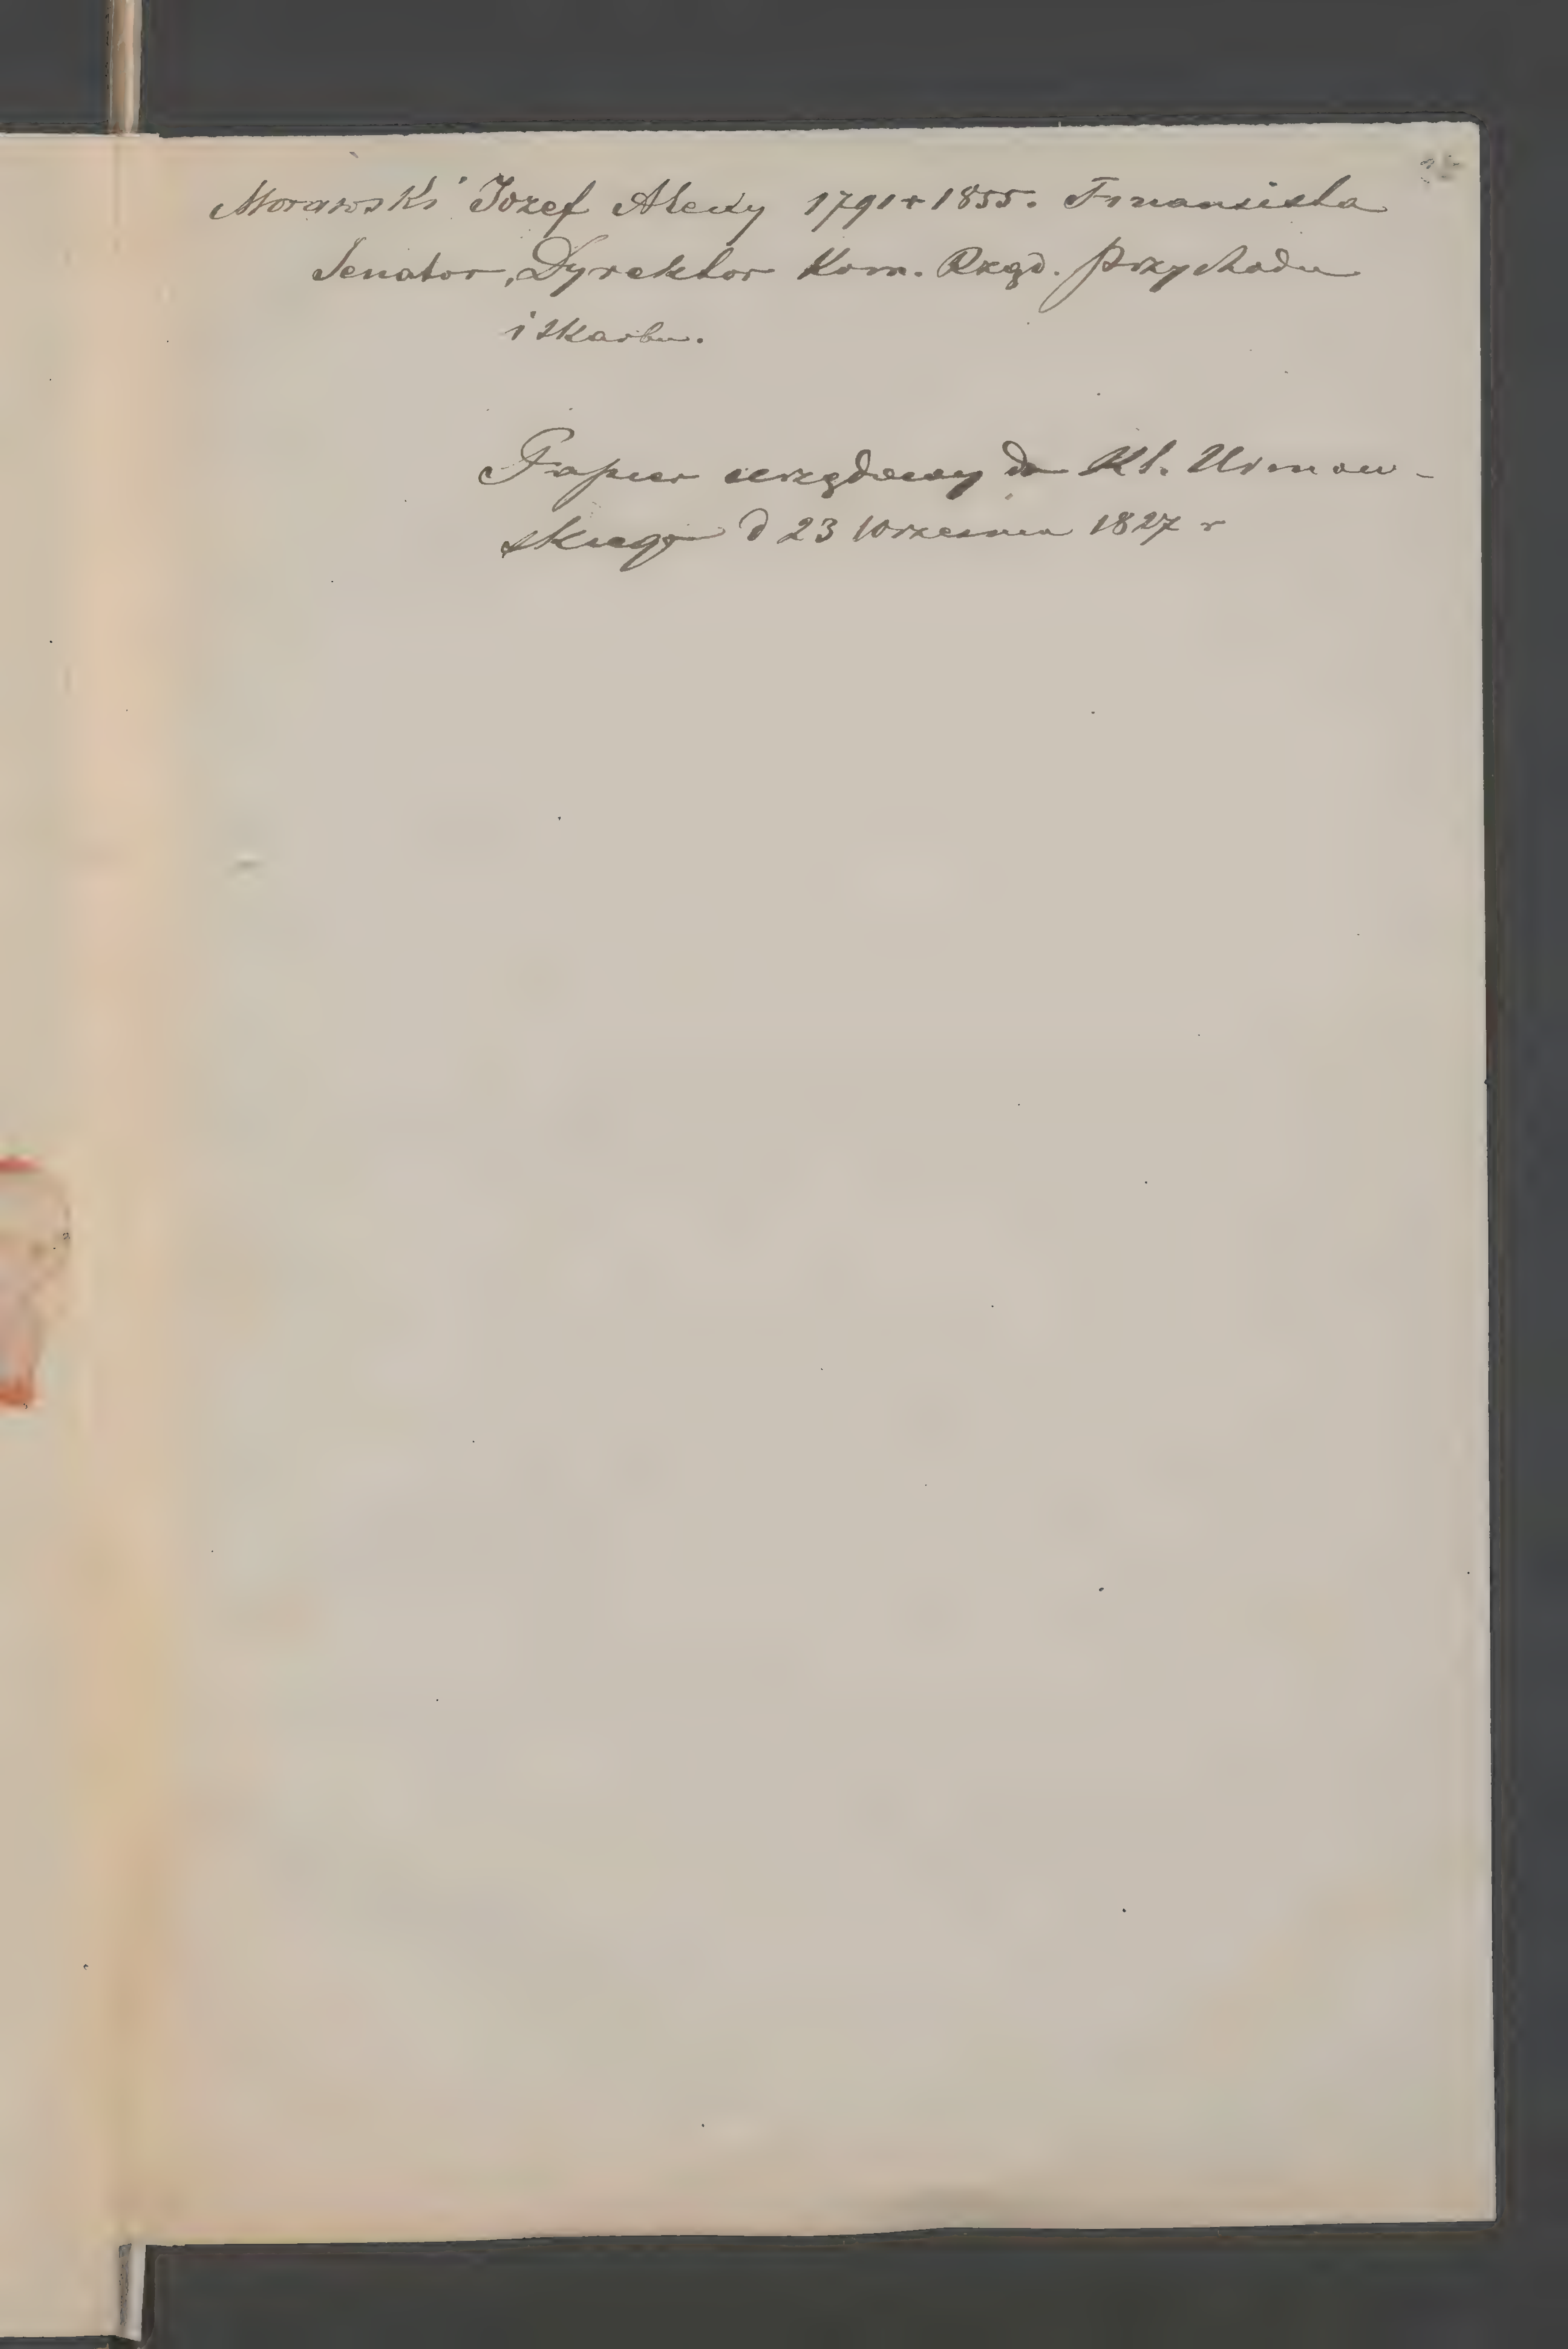 Morawski Józef Alexy 1791 + 1855. Finansista
Senator, Dyrektor Kom. Rząd. Przychodu
i Skarbu.
Papier urzędowy do Kl. Urmow-
skiego d 23 Września 1827 r